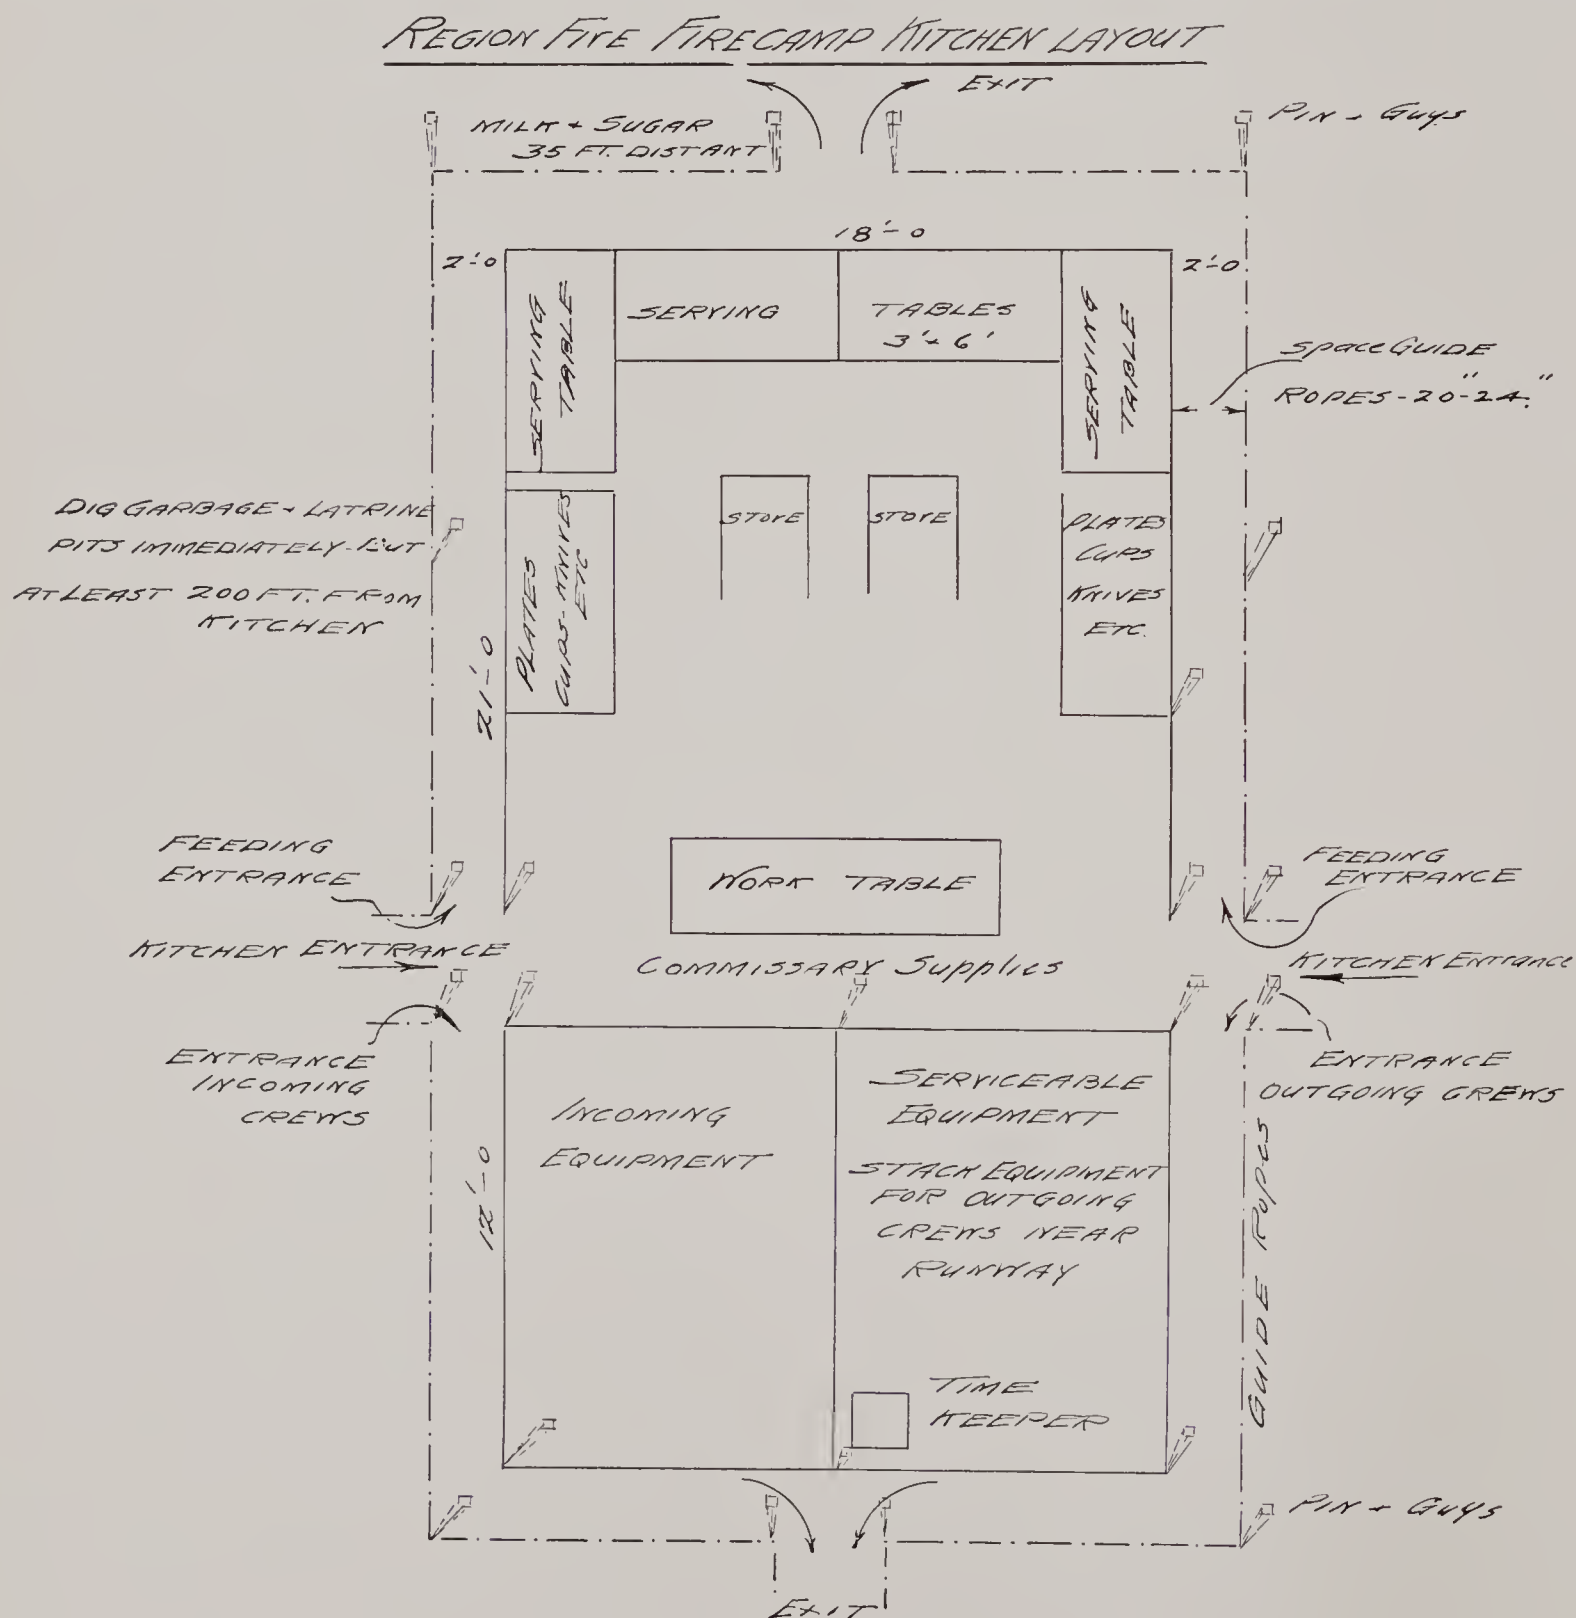 REGION FIVE FIRECAMP KITCHEN LAYOUT
EXIT
MILK + SUGAR
35 FT. DISTANT
PIN + Guys
18'-0
2'-0
2'-0
SERVING
TABLE
SERVING
TABLES
3' x 6'
SERVING
TABLE
Space GUIDE
ROPES - 20"-24"
DIG GARBAGE + LATRINE
PITS IMMEDIATELY - BUT
AT LEAST 200 FT. FROM
KITCHEN
STOVE
STOVE
PLATES
CUPS - KNIVES
ETC
PLATES
CUPS
KNIVES
ETC.
21'-0
FEEDING
ENTRANCE
WORK TABLE
FEEDING
ENTRANCE
KITCHEN ENTRANCE
COMMISSARY Supplies
KITCHEN Entrance
ENTRANCE
INCOMING
CREWS
ENTRANCE
OUTGOING CREWS
INCOMING
EQUIPMENT
SERVICEABLE
EQUIPMENT
STACK EQUIPMENT
FOR OUTGOING
CREWS NEAR
RUNWAY
12'-0
GUIDE Ropes
TIME
KEEPER
PIN + Guys
EXIT